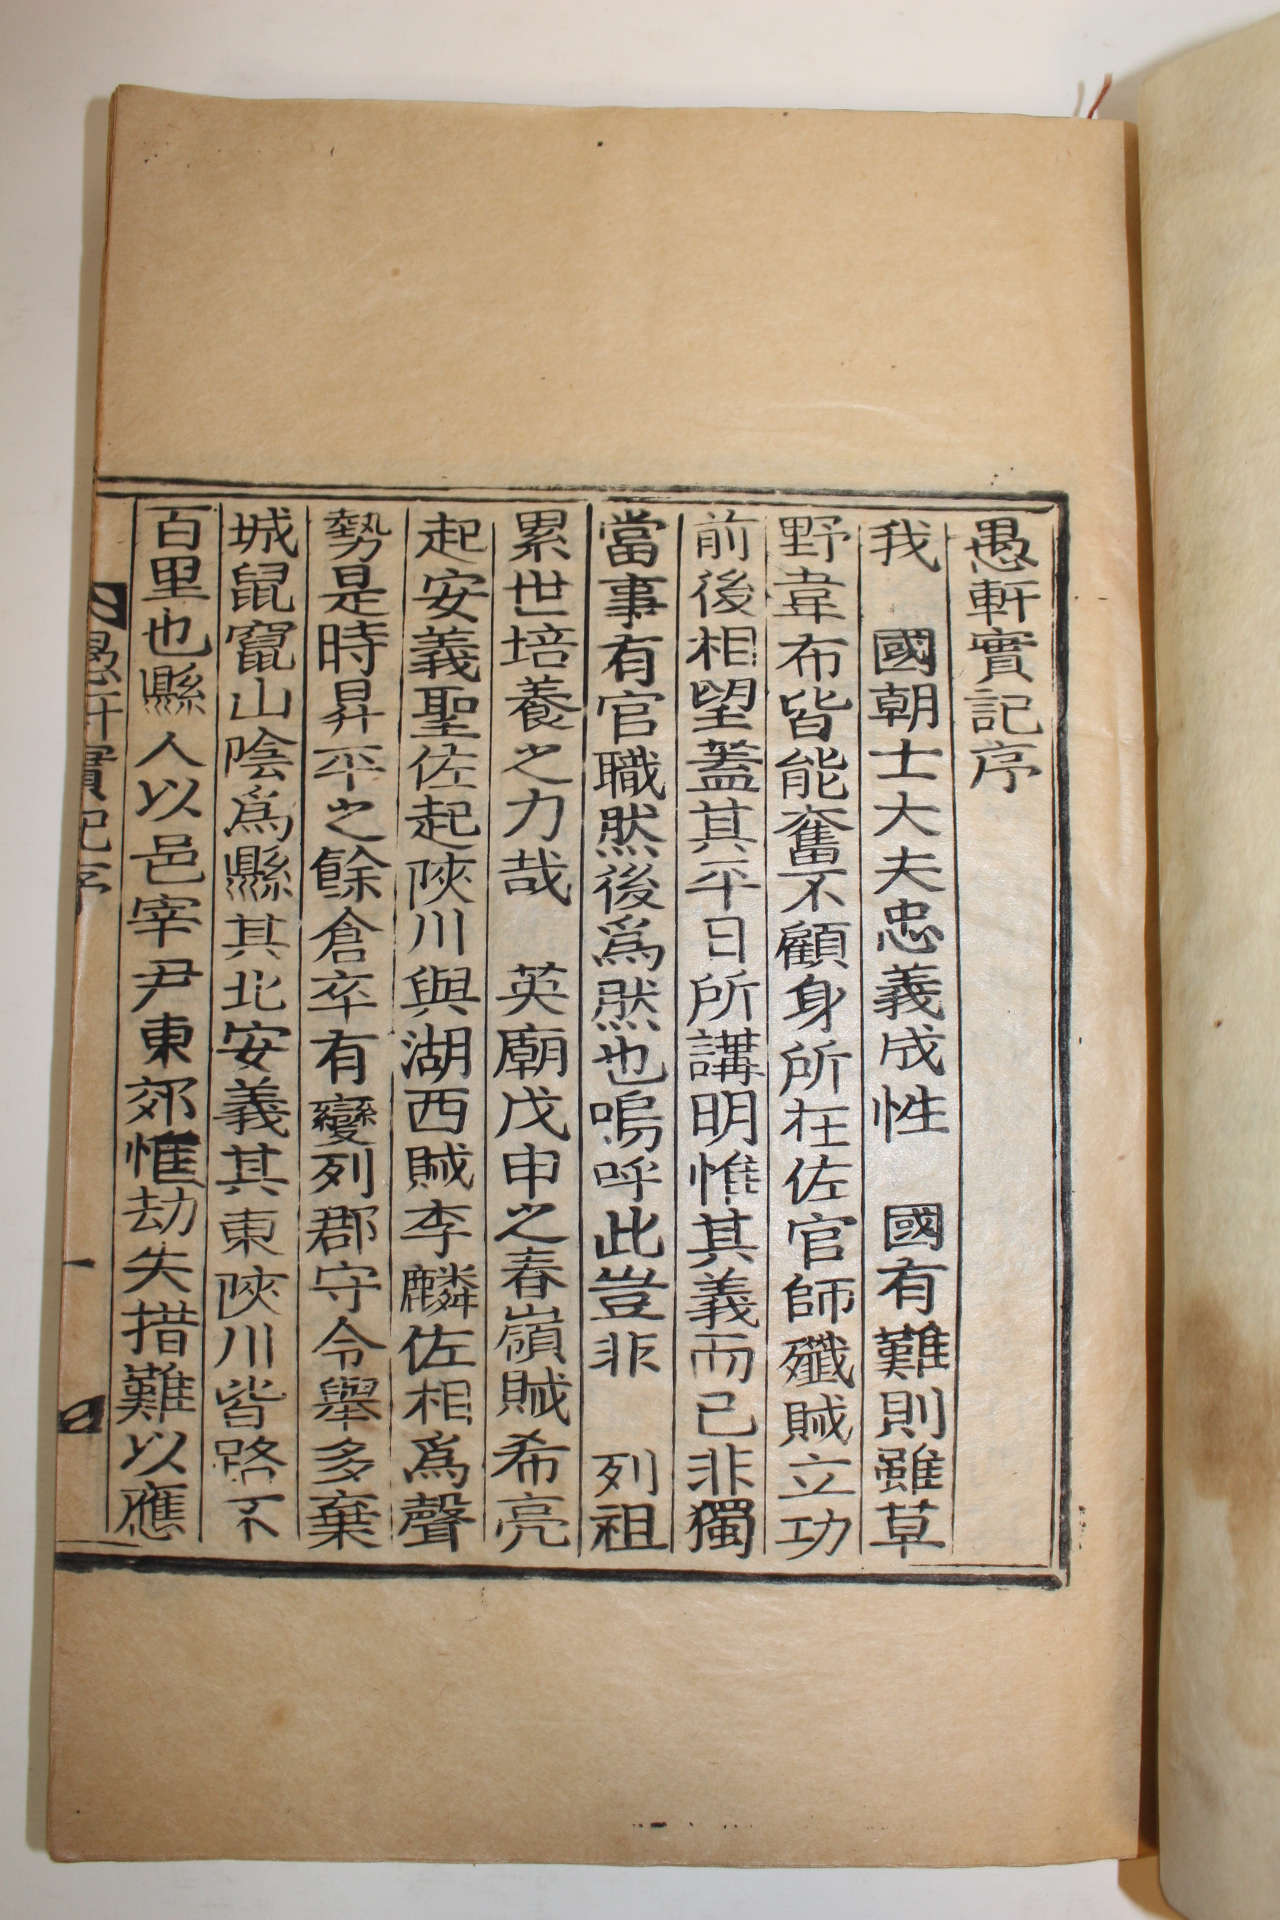 愚軒實記序
我　國朝士大夫忠義成性　國有難則雖草
野韋布皆能奮不顧身所在佐官師殲賊立功
前後相望蓋其平日所講明惟其義而已非獨
當事有官職然後爲然也嗚呼此豈非　列祖
累世培養之力哉　英廟戊申之春嶺賊希亮
起安義聖佐起陜川與湖西賊李麟佐相爲聲
勢是時昇平之餘倉卒有變列郡守令擧多棄
城鼠竄山陰爲縣其北安義其東陜川皆路不
百里也縣人以邑宰尹東郊惟劫失措難以應
愚軒實記序
一